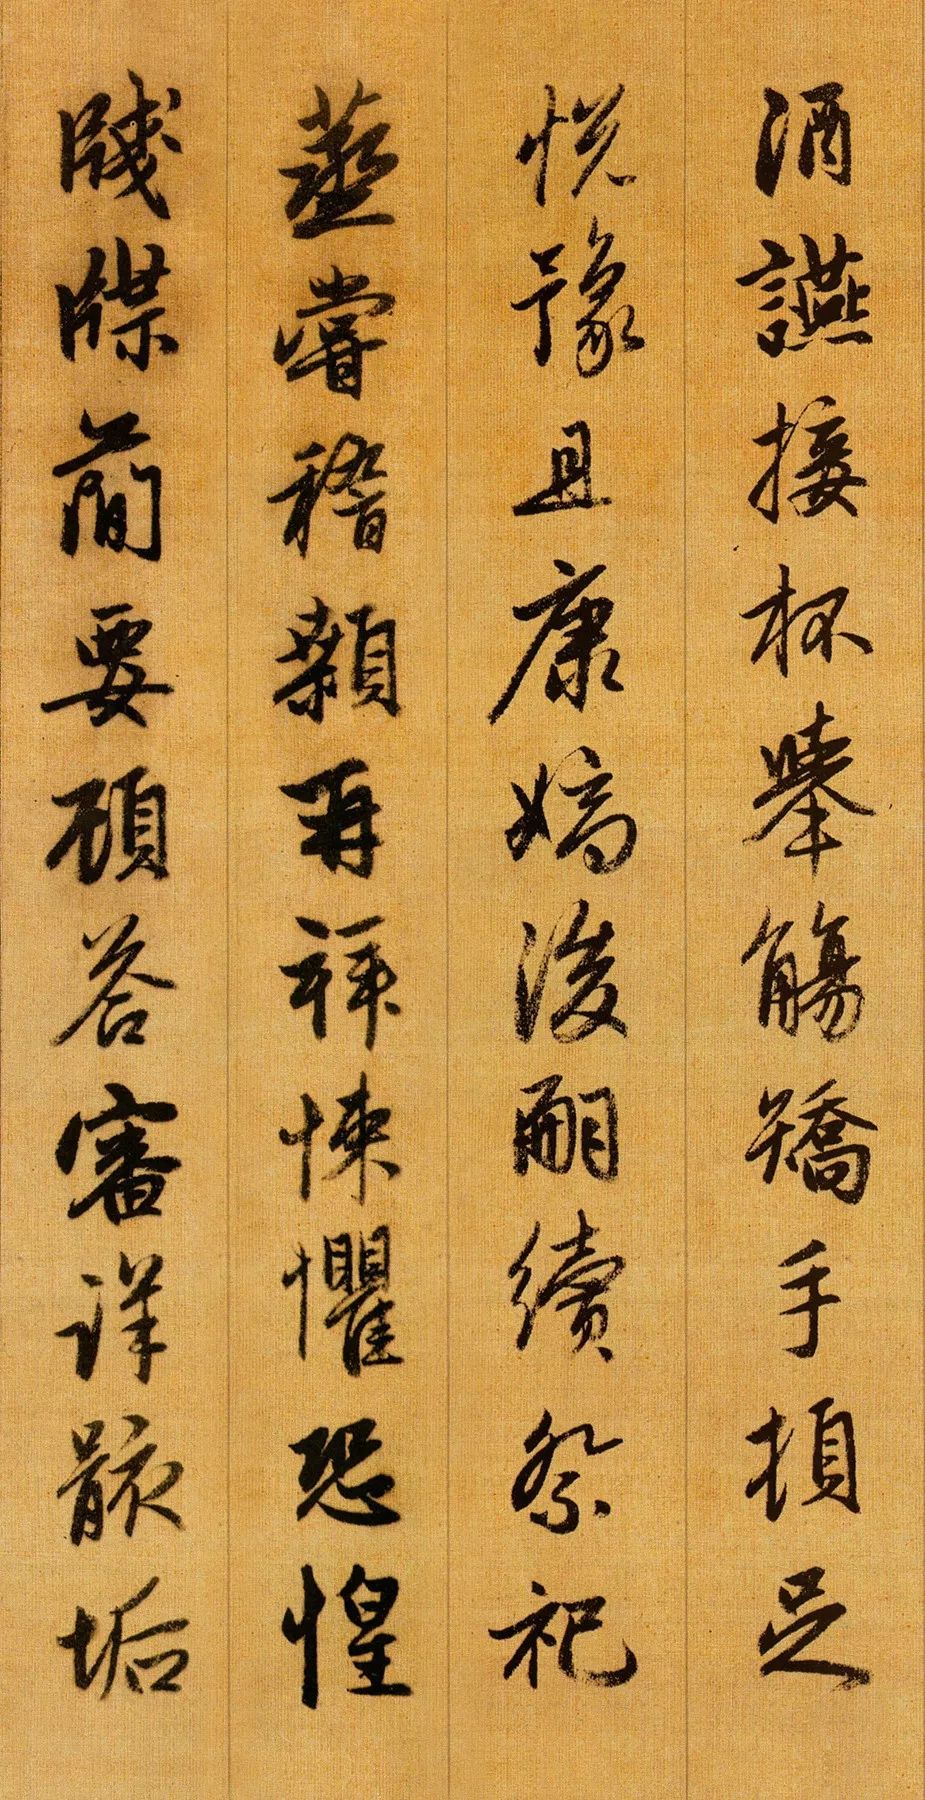 酒讌接杯舉觴矯手頓足
悅豫且康嫡後嗣續祭祀
蒸嘗稽顙再拜悚懼恐惶
牋牒簡要顧答審詳骸垢